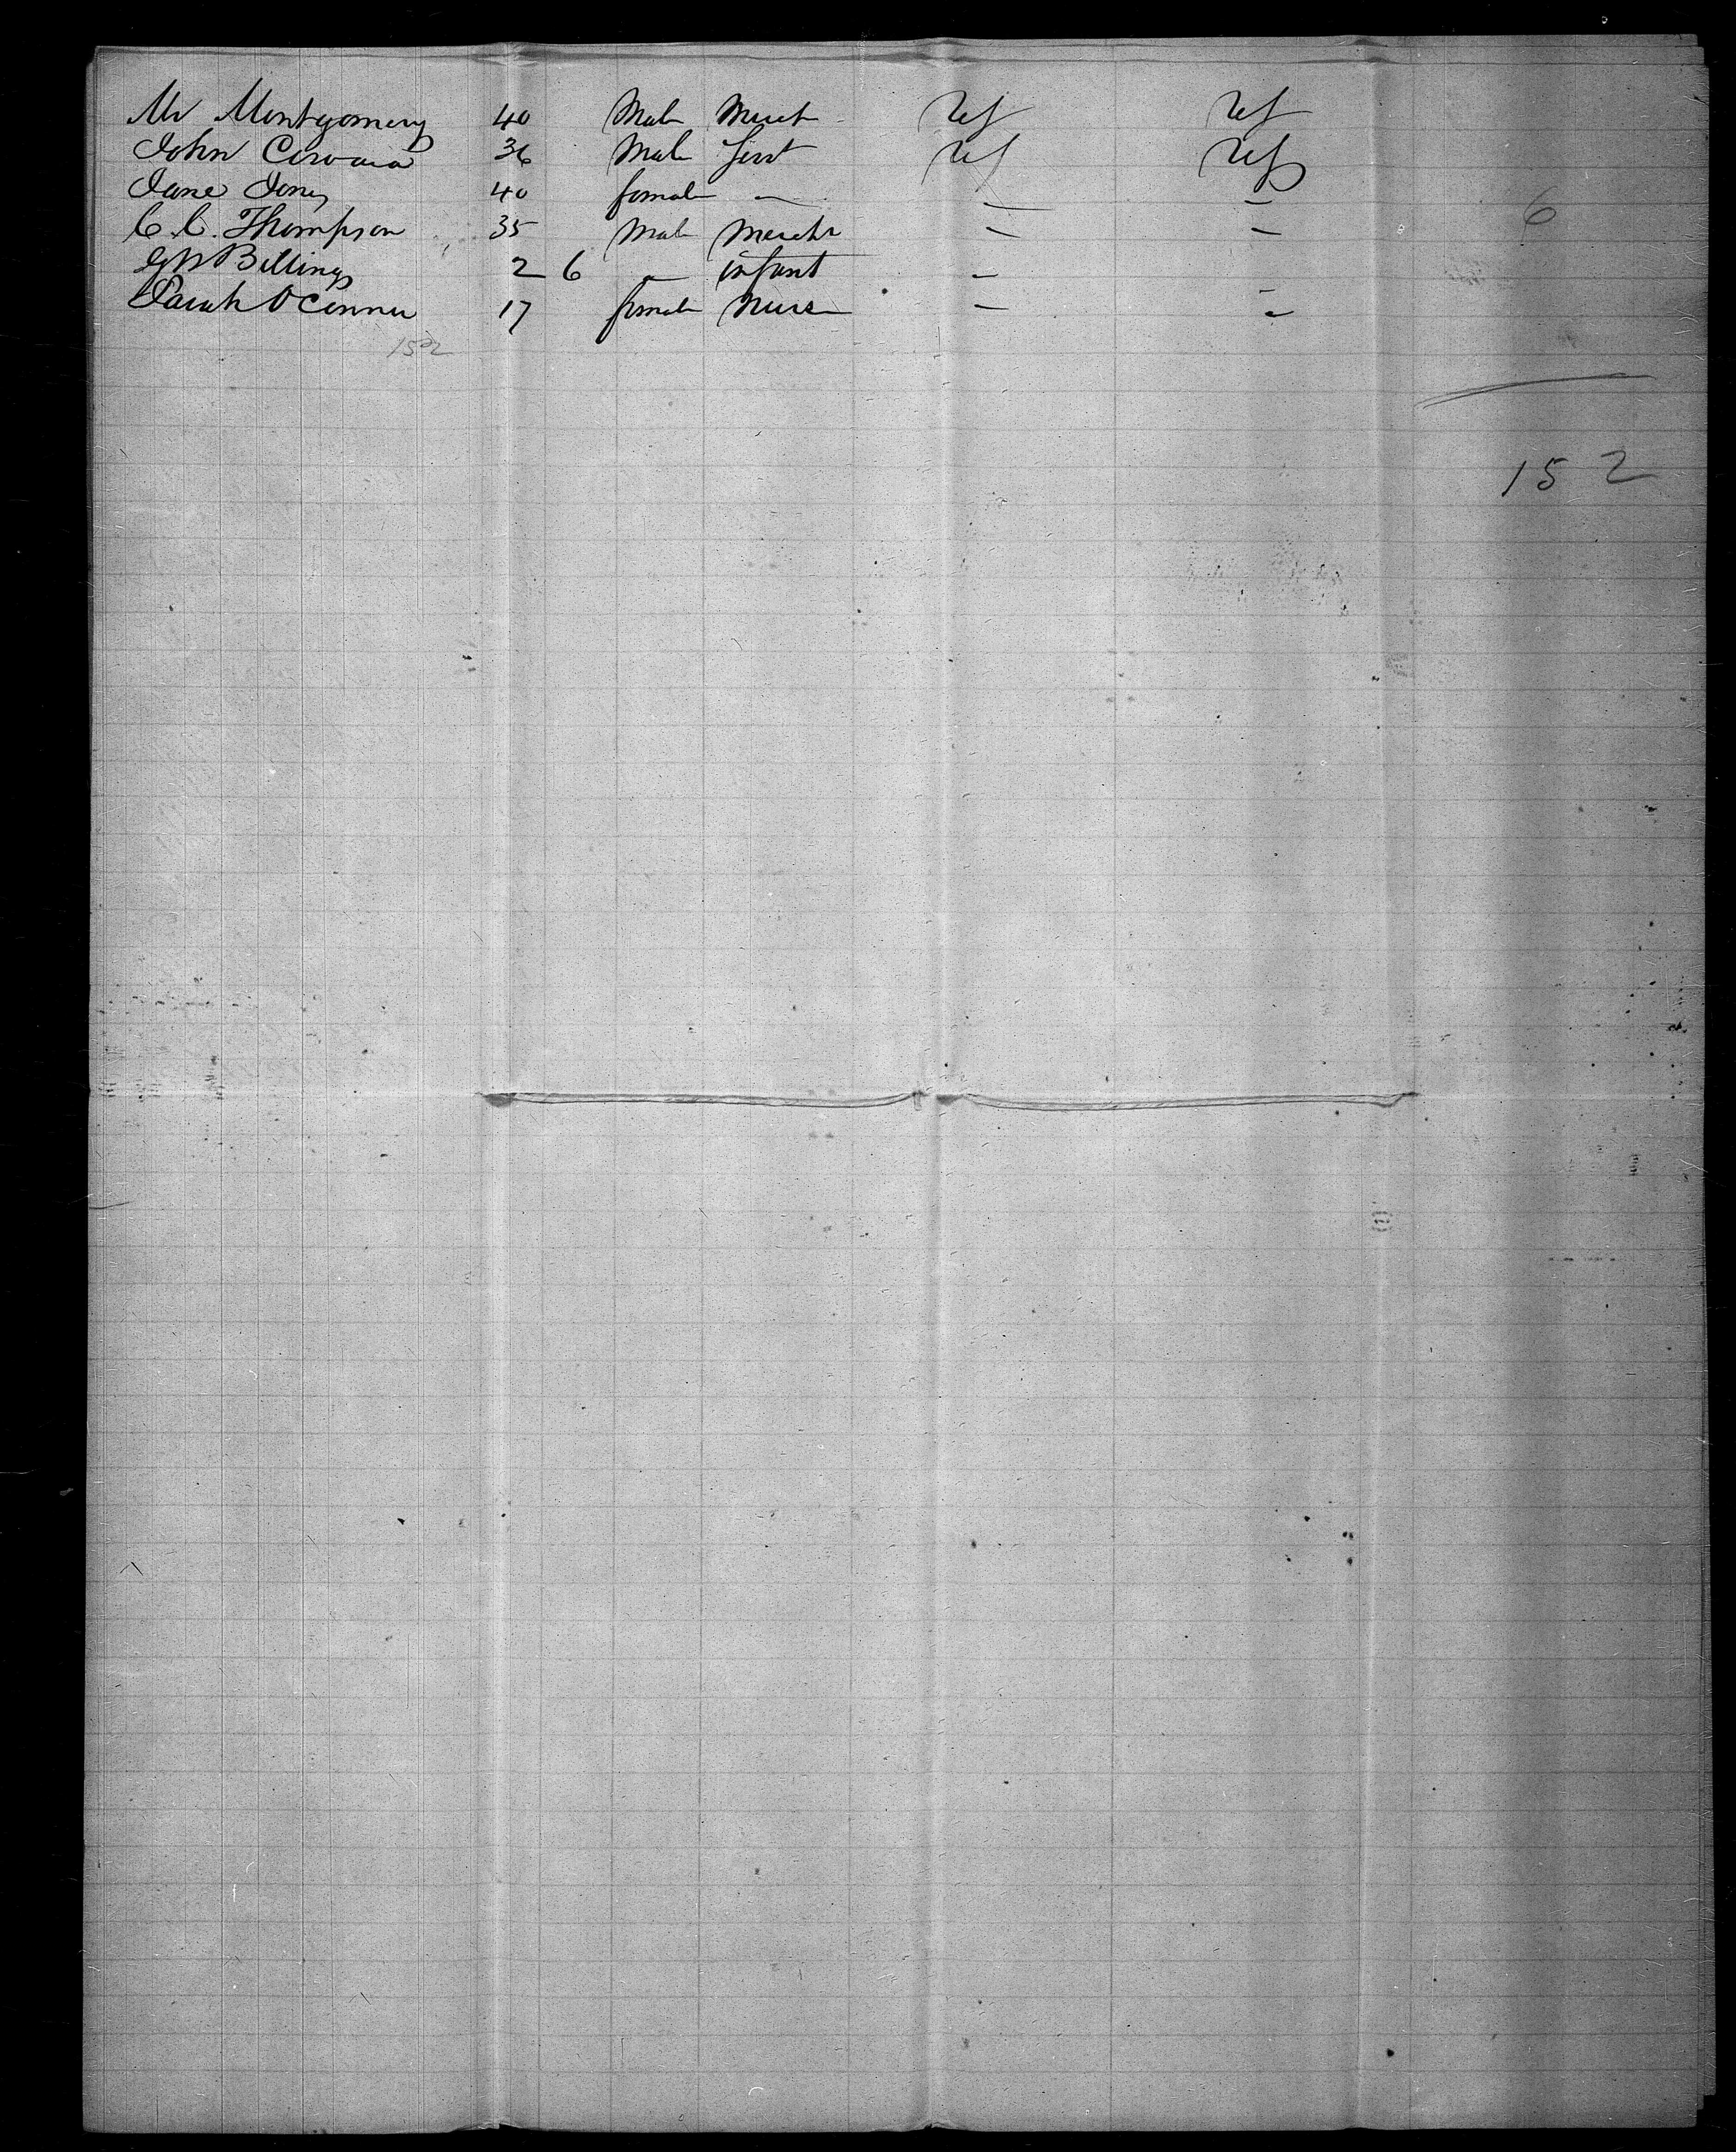 Mr Montgomery 40 Male Mercht US US
John 36 Male Servt US US
Jane Jones 40 female — — —
C. C. Thompson 35 Male Mercht — —
Billings 2 6 — infant — —
Sarah OConner 17 female Nurse — —
152
6
152